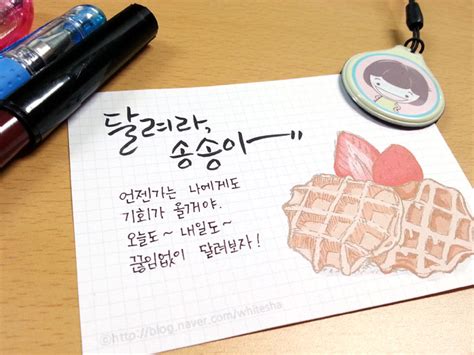 달려라,
송송이~!!
언젠가는 나에게도
기회가 올거야.
오늘도~ 내일도~
끊임없이 달려보자!
©http://blog.naver.com/whitesha